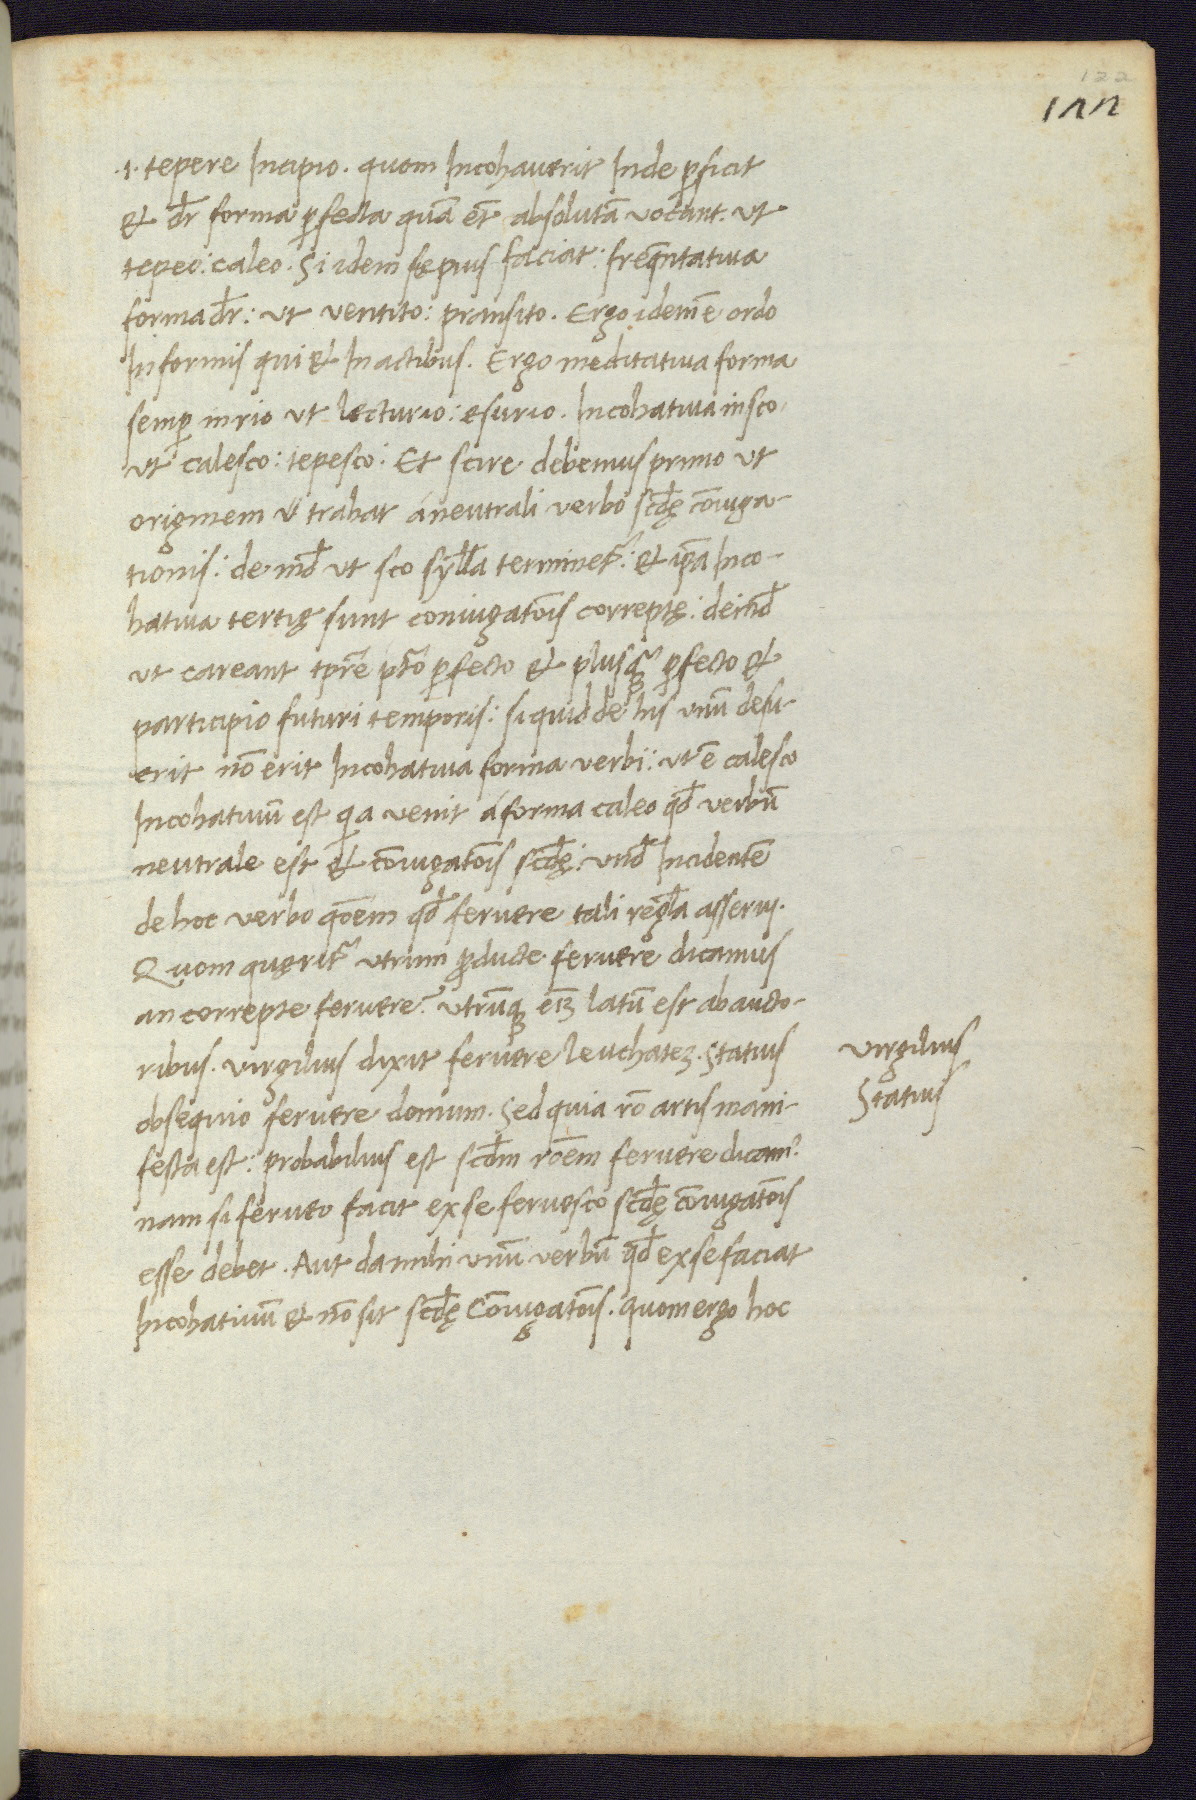 122
122
.1. tepere Incipio. quom Incohauerit Inde ꝑficit
& dr̄ forma ꝑfecta quā et̄ absolutā vocant. ut
tepeo: caleo. Si idem sępius faciat: freq̄ntatiua
forma dr̄: ut ventito: pransito. Ergo idem ē ordo
In formis qui & In actibus. Ergo meditatiua forma
semꝑ in rio ut lecturio: esurio. Incohatiua in sco
ut calesco: tepesco: Et scire debemus primo ut
originem trahat á neutrali verbo scd̄ę cōiuga-
tionis: deind̄ ut sco syll̄a terminet᷑: & ip̄a Inco-
hatiua tertię sunt coniugatōis correptę: deind̄
ut careant tp̄re p̄to ꝑfecto & plusꝗ ꝑfecto &
participio futuri temporis: si quid de his unū defu-
erit nō erit Incohatiua forma verbi: ut ē calesco
Incohatiuū est q̓a venit á forma caleo qd̄ verbū
neutrale est & cōiugatōis scd̄ę: und̄ Incidentē
de hoc verbo q̄oēm qd̄ feruere tali regl̄a asserūs.
Quom quęrit᷑ utrum ꝓducte feruere dicamus
an correpte feruere? utrūq; eīʒ latū est ab aucto-
ribus. virgilius dixit feruere leuchateʒ. Statius
obsequio feruere domum. Sed quia rō artis mani-
festa est: probabilius est scd̄m rōem feruere dicam᾿.
nam si ferueo facit ex se feruesco scd̄ę cōiugatōis
esse debet. Aut da mihi unū verbū qd̄ ex se faciat
Incohatiuū & nō sit scd̄ę Cōiugatōis. quom ergo hoc
virgilius
Statius